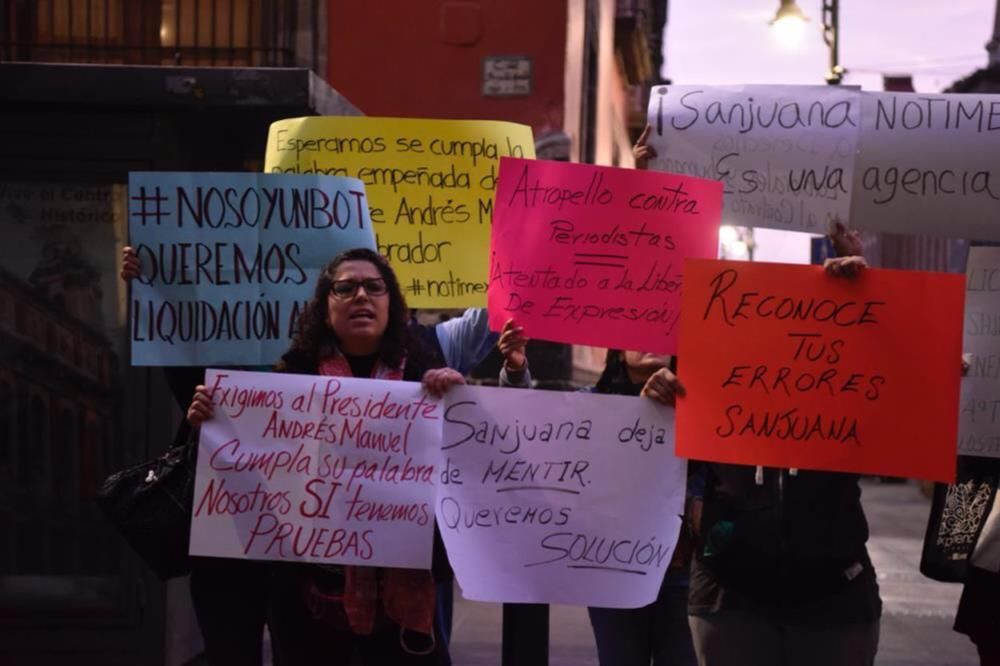 #NOSOYUNBOT
QUEREMOS
LIQUIDACIÓN
Esperamos se cumpla la
palabra empeñada de
Andrés M
brador
#notimex
Atropello contra
Periodistas
¡Atentado a la Liber
De Expresión!
¡SANJUANA NOTIME
Es una agencia
RECONOCE
TUS
ERRORES
SANJUANA
Exigimos al Presidente
ANDRÉS Manuel
Cumpla su palabra
Nosotros SI tenemos
PRUEBAS
Sanjuana deja
de MENTIR.
Queremos
SOLUCIÓN
Vive el Centro
Histórico